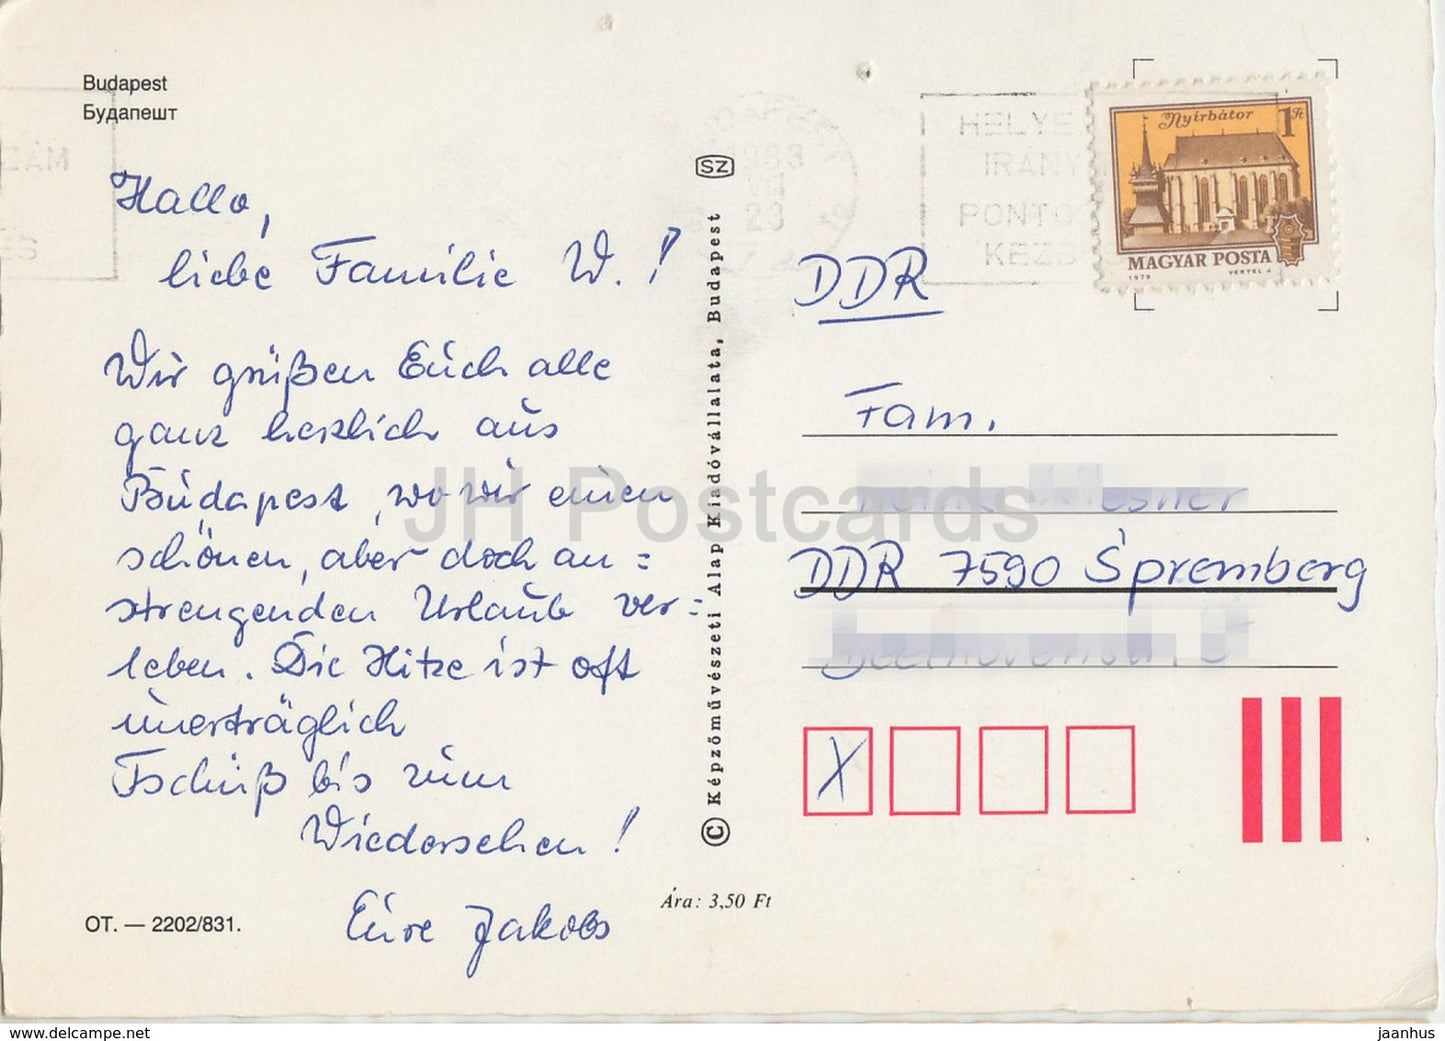 Budapest
Будапешт
Hallo,
liebe Familie W.!
Wir grüßen Euch alle
ganz herzlich aus
Budapest, wo wir einen
schönen, aber doch an=
strengenden Urlaub ver=
leben. Die Hitze ist oft
unerträglich
Tschüß bis zum
Wiedersehen!
Eure Jakobs
OT. — 2202/831.
SZ
© Képzőművészeti Alap Kiadóvállalata, Budapest
Ára: 3,50 Ft
1983
VIII
23
HELYE
IRÁNY
PONTO
KEZB
Nyírbátor
1 Ft
MAGYAR POSTA
1979
VERTEL J.
DDR
Fam.
DDR 7590 Spremberg
X
JH Postcards
www.delcampe.net
jaanhus